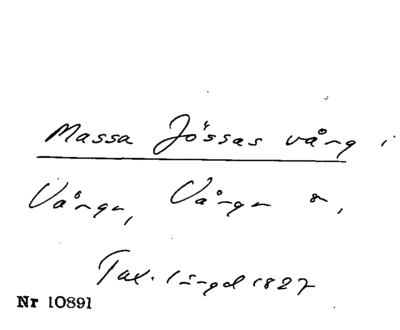 Massa Jössas vång i
Vånga, Vånga sn,
Tax. längd 1827
Nr 10891